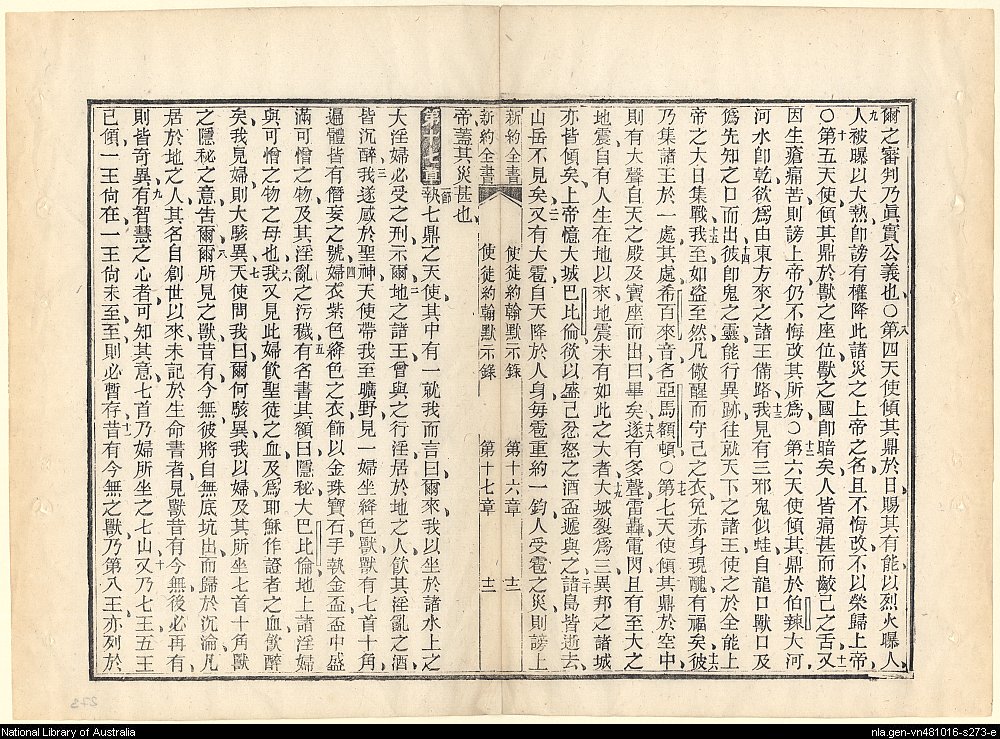 爾之審判乃眞實公義也○八第四天使傾其鼎於日賜其有能以烈火曝人
九人被曝以大熱卽謗有權降此諸災之上帝之名且不悔改不以榮歸上帝
○十第五天使傾其鼎於獸之座位獸之國卽暗矣人皆痛甚而齩己之舌又十一
因生瘡痛苦則謗上帝仍不悔改其所爲○十二第六天使傾其鼎於伯辣大河
河水卽乾欲爲由東方來之諸王備路我十三見有三邪鬼似蛙自龍口獸口及
僞先知之口而出彼十四卽鬼之靈能行異跡往就天下之諸王使之於全能上
帝之大日集戰我十五至如盜至然凡儆醒而守己之衣免赤身現醜有福矣彼十六
乃集諸王於一處其處希百來音名亞馬額頓○十七第七天使傾其鼎於空中
則有大聲自天之殿及寶座而出曰畢矣遂十八有多聲雷轟電閃且有至大之
地震自有人生在地以來地震未有如此之大者大十九城裂爲三異邦之諸城
亦皆傾矣上帝憶大城巴比倫欲以盛己忿怒之酒盃遞與之諸二十島皆逝去
山岳不見矣又二一有大雹自天降於人身每雹重約一鈞人受雹之災則謗上
新約全書 使徒約翰默示錄 第十六章 十二
新約全書 使徒約翰默示錄 第十七章 十二
帝蓋其災甚也
第十七章 一節執七鼎之天使其中有一就我而言曰爾來我以坐於諸水上之
大淫婦必受之刑示爾地二之諸王曾與之行淫居於地之人飲其淫亂之酒
皆沉醉我三遂感於聖神天使帶我至曠野見一婦坐絳色獸獸有七首十角
遍體皆有僭妄之號婦四衣紫色絳色之衣飾以金珠寶石手執金盃盃中盛
滿可憎之物及其淫亂之污穢有五名書其額曰隱秘大巴比倫地上諸淫婦
與可憎之物之母也我六又見此婦飲聖徒之血及爲耶穌作證者之血飲醉
矣我見婦則大駭異天七使問我曰爾何駭異我以婦及其所坐七首十角獸
之隱秘之意告爾爾八所見之獸昔有今無彼將自無底坑出而歸於沉淪凡
居於地之人其名自創世以來未記於生命書者見獸昔有今無後必再有
則皆奇異有九智慧之心者可知其意七首乃婦所坐之七山又十乃七王五王
已傾一王尙在一王尙未至至則必暫存昔十一有今無之獸乃第八王亦列於
National Library of Australia
nla.gen-vn481016-s273-e